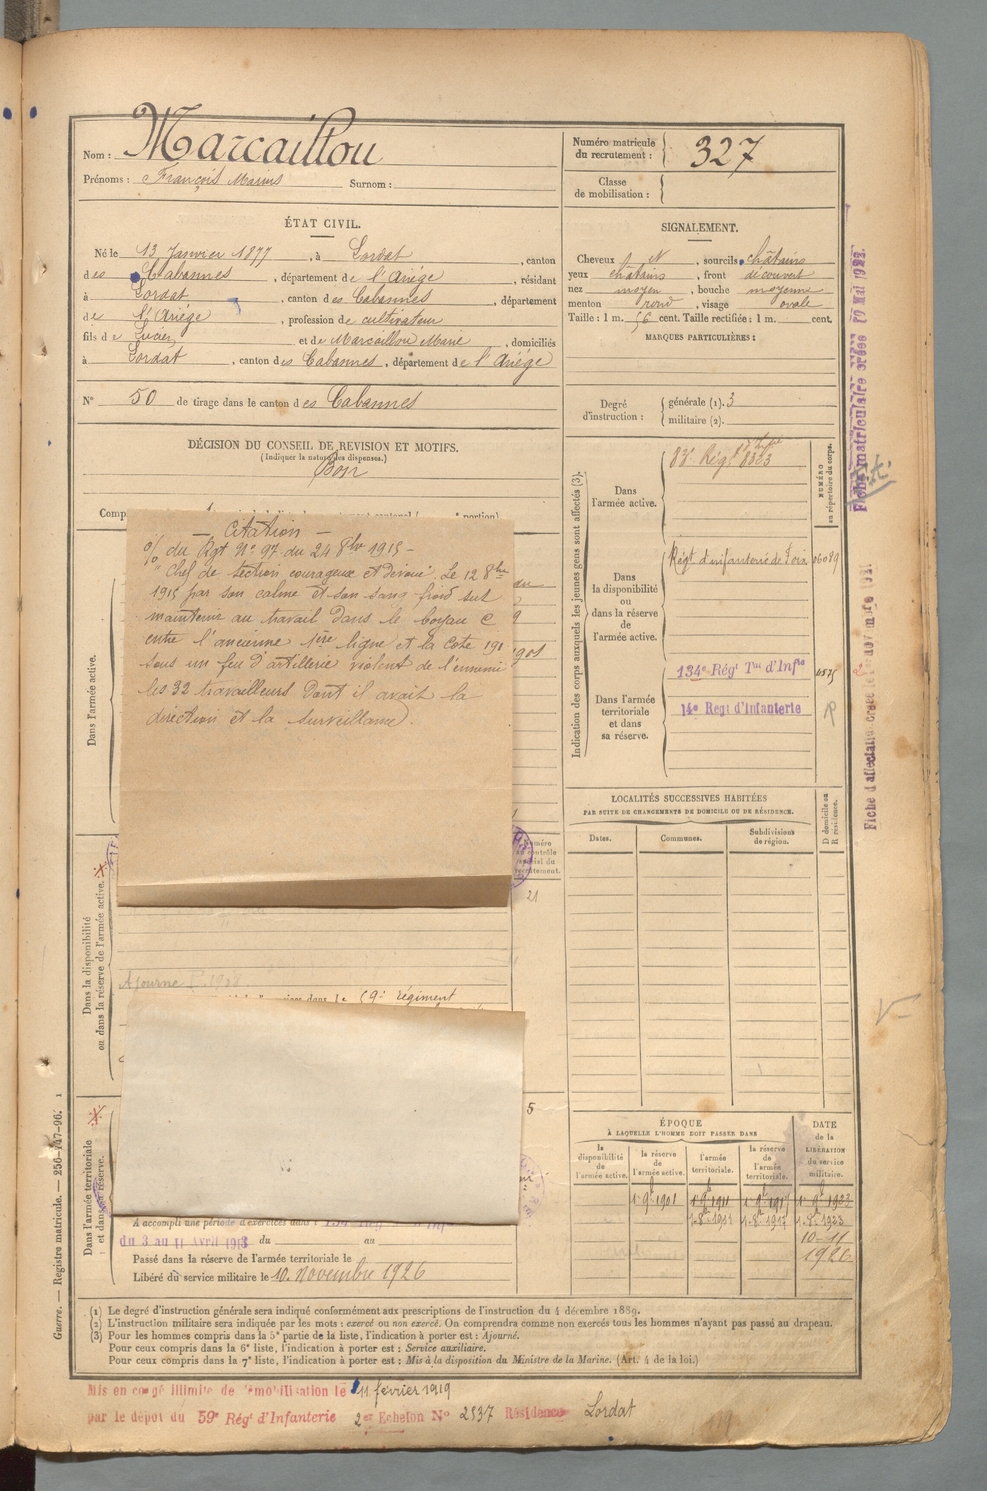 Nom : Marcaillou
Prénoms : François Marius Surnom :
Numéro matricule
du recrutement : 327
Classe
de mobilisation :
ÉTAT CIVIL.
Né le 13 Janvier 1877, à Lordat, canton
des Cabannes, département de l'Ariége, résidant
à Lordat, canton des Cabannes, département
de l'Ariége, profession de cultivateur
fils de et de Marcaillou Marie, domiciliés
à Lordat, canton des Cabannes, département de l'Ariége
N° 50 de tirage dans le canton des Cabannes
DÉCISION DU CONSEIL DE REVISION ET MOTIFS.
(Indiquer la nature des dispenses.)
Bon
Comp
portion)
SIGNALEMENT.
Cheveux N, sourcils châtains
yeux châtains, front découvert
nez moyen, bouche moyenne
menton rond, visage ovale
Taille : 1 m. 56 cent. Taille rectifiée : 1 m. cent.
MARQUES PARTICULIÈRES :
Degré
d'instruction :
générale (1). 3
militaire (2).
Citation
du Rgt N° 97 du 24 8bre 1915 -
"Chef de section courageux et dévoué. Le 12 8bre
1915 par son calme et son sang froid sut
maintenir au travail dans le boyau C
entre l'ancienne 1ère ligne et la cote 191
sous un feu d'artillerie violent de l'ennemi
les 32 travailleurs dont il avait la
direction et la surveillance.
Dans l'armée active.
1901
Indication des corps auxquels les jeunes gens sont affectés (3).
Dans
l'armée active.
NUMÉRO
au répertoire du corps.
Dans
la disponibilité
ou
dans la réserve
de
l'armée active.
Régt d'infanterie de Foix
Dans l'armée
territoriale
et dans
sa réserve.
134e Régt Tal d'Infie
14e Regt d'Infanterie
R
LOCALITÉS SUCCESSIVES HABITÉES
PAR SUITE DE CHANGEMENTS DE DOMICILE OU DE RÉSIDENCE.
Dates. Communes. Subdivisions
de région.
D domicile ou
R résidence.
Numéro
au contrôle
spécial du
recrutement.
21
Dans la disponibilité
ou dans la réserve de l'armée active.
Ajourné
59e régiment
Dans l'armée territoriale
et dans sa réserve.
5
A accompli une période d'exercices dans
du 3 au 11 Avril 1913 du au
Passé dans la réserve de l'armée territoriale le
Libéré du service militaire le 10 Novembre 1926
ÉPOQUE
À LAQUELLE L'HOMME DOIT PASSER DANS
la
disponibilité
de
l'armée active.
la réserve
de
l'armée active.
l'armée
territoriale.
la réserve
de
l'armée
territoriale.
DATE
de la
LIBÉRATION
du service
militaire.
1 9bre 1901 1 9bre 1911 1 9bre 1917 1 9bre 1923
10-11
1926
(1) Le degré d'instruction générale sera indiqué conformément aux prescriptions de l'instruction du 4 décembre 1889.
(2) L'instruction militaire sera indiquée par les mots : exercé ou non exercé. On comprendra comme non exercés tous les hommes n'ayant pas passé au drapeau.
(3) Pour les hommes compris dans la 5e partie de la liste, l'indication à porter est : Ajourné.
Pour ceux compris dans la 6e liste, l'indication à porter est : Service auxiliaire.
Pour ceux compris dans la 7e liste, l'indication à porter est : Mis à la disposition du Ministre de la Marine. (Art. 4 de la loi.)
Mis en congé illimité de démobilisation le 11 février 1919
par le dépôt du 59e Régt d'Infanterie 2e Echelon N° 2537 Résidence Lordat
Guerre. — Registre matricule. — 256-147-96.
Fiche matriculaire créée 20 Mai 1922.